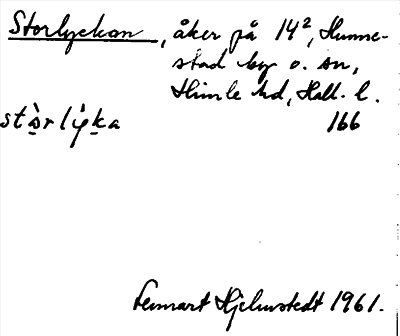 Storlyckan, åker på 14², Hunne-
stad by o. sn,
Himle hd, Hall. l.
stɷ̀rlỳka 166
Lennart Hjelmstedt 1961.